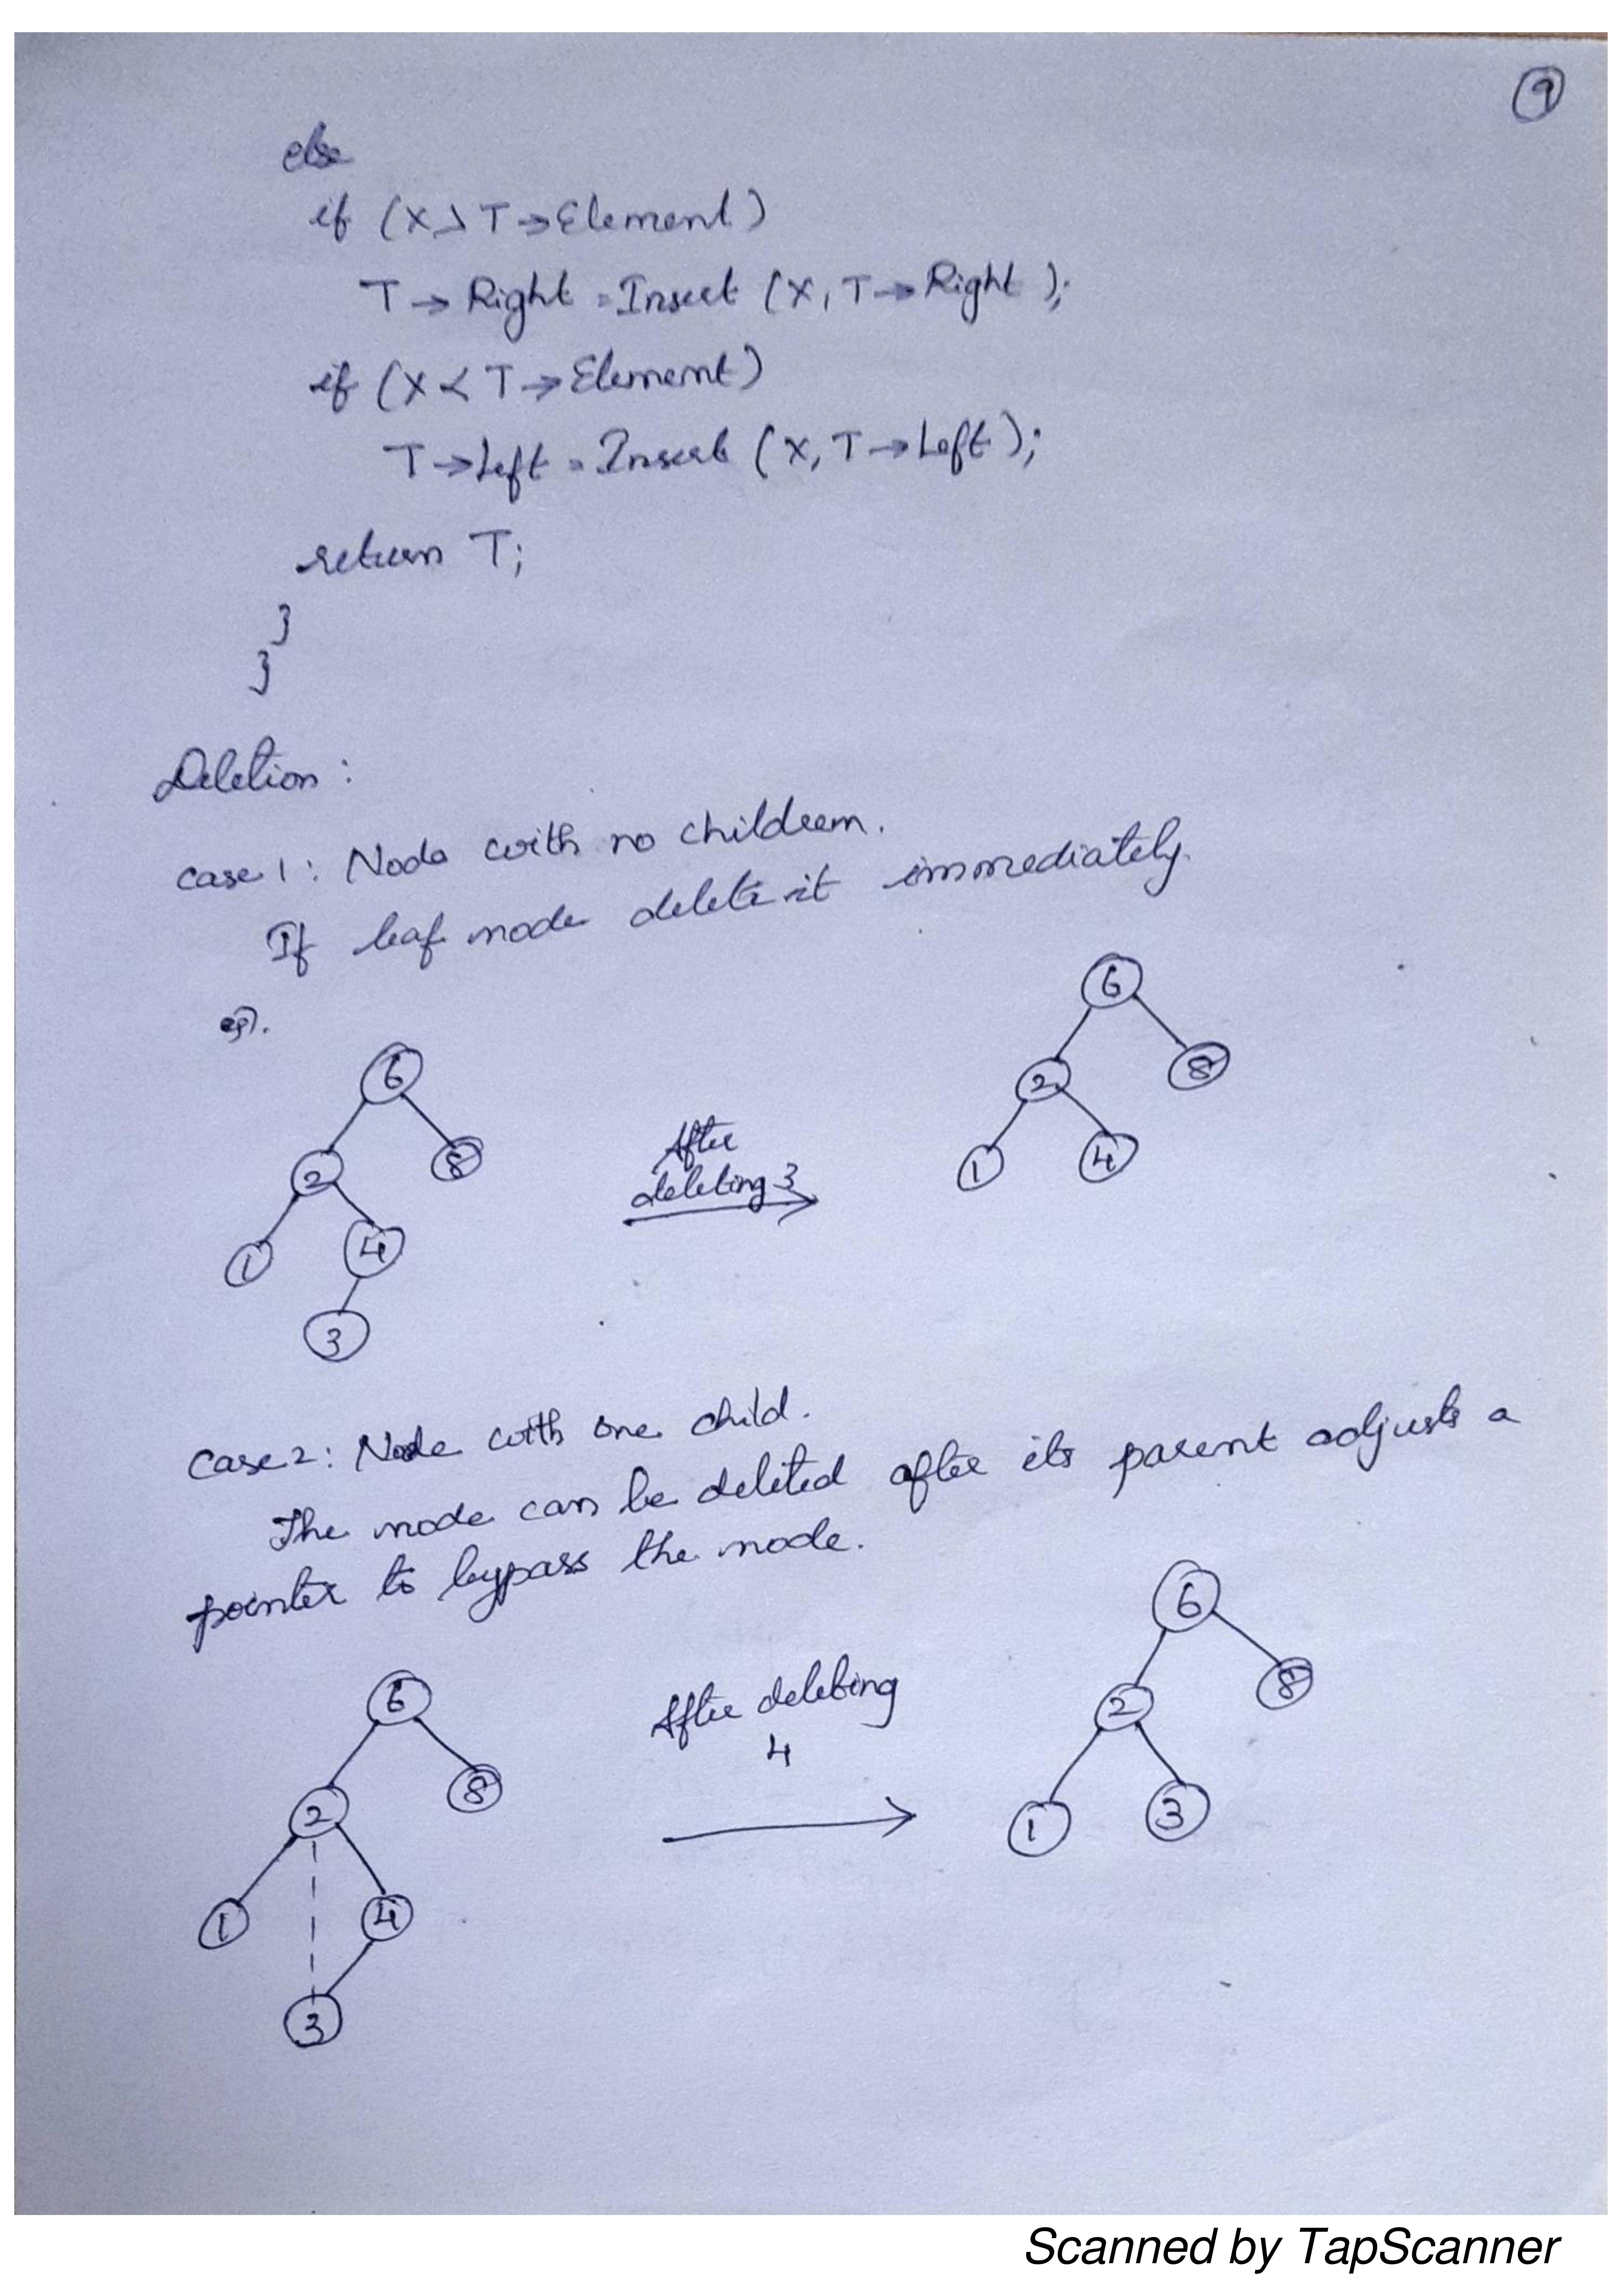 9
else
if (X > T → Element)
T → Right = Insert (X, T → Right );
if (X < T → Element)
T → Left = Insert (X, T → Left );
return T;
}
}
Deletion :
case 1 : Node with no childreen.
If leaf node delete it immediately.
eg).
6
6
8
2
8
2
After
deleting 3
1
4
1
4
3
case 2 : Node with one child.
The node can be deleted after its parent adjusts a
pointer to bypass the node.
6
6
8
2
After deleting
4
8
2
1
3
1
4
3
Scanned by TapScanner